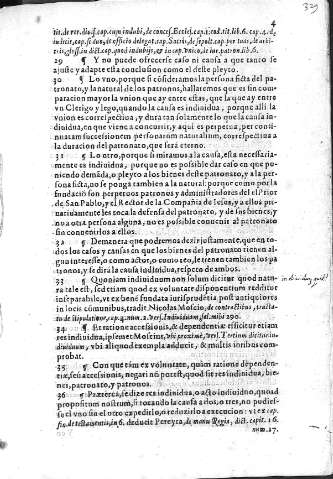 329
4
tit. de rer. diuis. cap. cum in dubij, de concess. Eccles. cap. 1. eod. tit. lib. 6. cap. 4. d.
29 ¶ Y no puede ofrecerse caso ni causa a que tanto se
ajuste y adapte esta conclusion como el deste pleyto.
30 ¶ Lo vno, porque si cõsideramos la persona ficta del pa-
tronato, y la natural de los patronos, hallaremos que es sin com-
paracion mayor la vnion que ay entre estas, que la que ay entre
vn Clerigo y lego, quando la causa es indiuidua, porque alli la
vnion es correspectiua, y dura tan solamente lo que la causa in-
diuidua, en que viene a concurrir, y aqui es perpetua, per conti-
nuatam successionem personarum naturalium, correspectiua a
la duracion del patronato, que será eterno.
31 ¶ Lo otro, porque si miramos a la causa, esta necessaria-
mente es indiuidua, porque no es possible dar caso en que po-
niendo demãda, o pleyto a los bienes deste patronato, y a la per-
sona ficta, no se ponga tambien a la natural: porque como por la
fundació son perpetuos patronos y administradores del el Prior
de San Pablo, y el Rector de la Compañia de Iesus, y a ellos pri-
uatiuamente les toca la defensa del patronato, y de sus bienes, y
no a otra persona alguna, no es possible conuenir al patronato
sin conuenirlos a ellos.
32 ¶ Demanera que podremos dezir justamente, que en to-
dos los casos y causas en que los bienes del patronato tienen al-
gun interesse, o como actor, o como reo, le tienen tambien los pa-
tronos, y se dirá la causa indiuidua, respeto de ambos.
33 ¶ Quoniam indiuiduum non solum dicitur quod natu-
ra tale est, sed etiam quod ex voluntate disponentium redditur
inseparabile, vt ex bene fundata iurisprudẽtia, post antiquiores
in locis communibus, tradit Nicolas Moscio, de contractibus, tracta-
tu de stipulatione, cap. 4. num. 2. vers. Indiuiduum, fol. mihi 290.
34 ¶ Et ratione accessionis, & dependentiæ efficitur etiam
res indiuidua, ipsemet Moscius, vbi proximè, vers. Tertium dicitur in-
diuiduum, vbi aliquod exempla adducit, & multis iuribus com-
probat.
35 ¶ Con que tam ex voluntate, quàm ratione dependen-
tiæ, seu accessionis, negari nõ potest, quod sit res indiuidua, bie-
nes, patronato, y patronos.
36 ¶ Præterea, se dize res indiuidua, o acto indiuiduo, quoad
propositum nostrum, si tocando la causa a dos, o tres, no pudies-
se el vno sin el otro expedirlo, o reduzirlo a execucion: vt ex cap.
fin. de testamentis, in 6. deducit Pereyra, de manu Regia, dict. capit. 16.
num. 17.